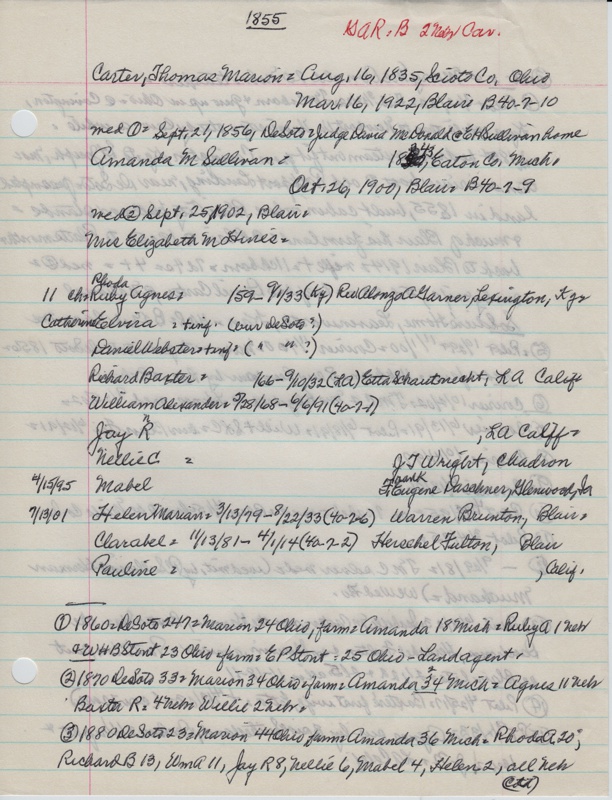 1855
GAR: B 2 Neb Cav.
Carter, Thomas Marion = Aug, 16, 1835, Scioto Co, Ohio
Mar, 16, 1922, Blair B40-7-10
med ① = Sept, 21, 1856, DeSoto = Judge David McDonald @ EH Sullivan home
Amanda M Sullivan = 1836, Eaton Co, Mich.
Oct, 26, 1900, Blair B40-7-9
med ② Sept, 25, 1902, Blair.
Mrs Elizabeth M Hines =
Rhoda
11 ch = Ruby Agnes = '59 - 9/1/33 (Ky) Rev Alonzo A Garner, Lexington, Ky =
Catherine Elvira = + inf. (bur DeSoto?)
Daniel Webster = + inf = ( " " ?)
Richard Baxter = '66 - 9/10/32 (LA) Etta Schautmeaht, LA Calif
William Alexander = 9/28/68 - 6/6/91 (40-7-7)
Jay R , LA Calif =
Nellie C = J T Wright, Chadron
Frank
4/15/95 Mabel Eugene Daschner, Glenwood, Ia
7/13/01 Helen Marian = 3/13/79 - 8/22/33 (40-2-6) Warren Brunton, Blair.
Clarabel = 11/13/81 - 4/1/14 (40-2-2) Herschel Fulton, Blair
Pauline = , Calif.
① 1860 = DeSoto 247 = Marion 24 Ohio, farm = Amanda 18 Mich = Ruby A 1 Neb
& WHB Stont 23 Ohio = farm = E P Stont = 25 Ohio = Land agent.
② 1870 DeSoto 33 = Marion 34 Ohio = farm = Amanda 34 Mich = Agnes 11 Neb
Baxter R = 4 Neb = Willie 2 Neb.
③ 1880 DeSoto 23 = Marion 44 Ohio, farm = Amanda 36 Mich = Rhoda A 20;
Richard B 13, Wm A 11, Jay R 8, Nellie 6, Mabel 4, Helen 2, all Neb
(Ctd)